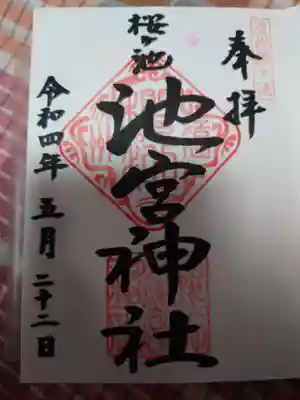 奉拝
桜ヶ池
池宮神社
令和四年五月二十二日